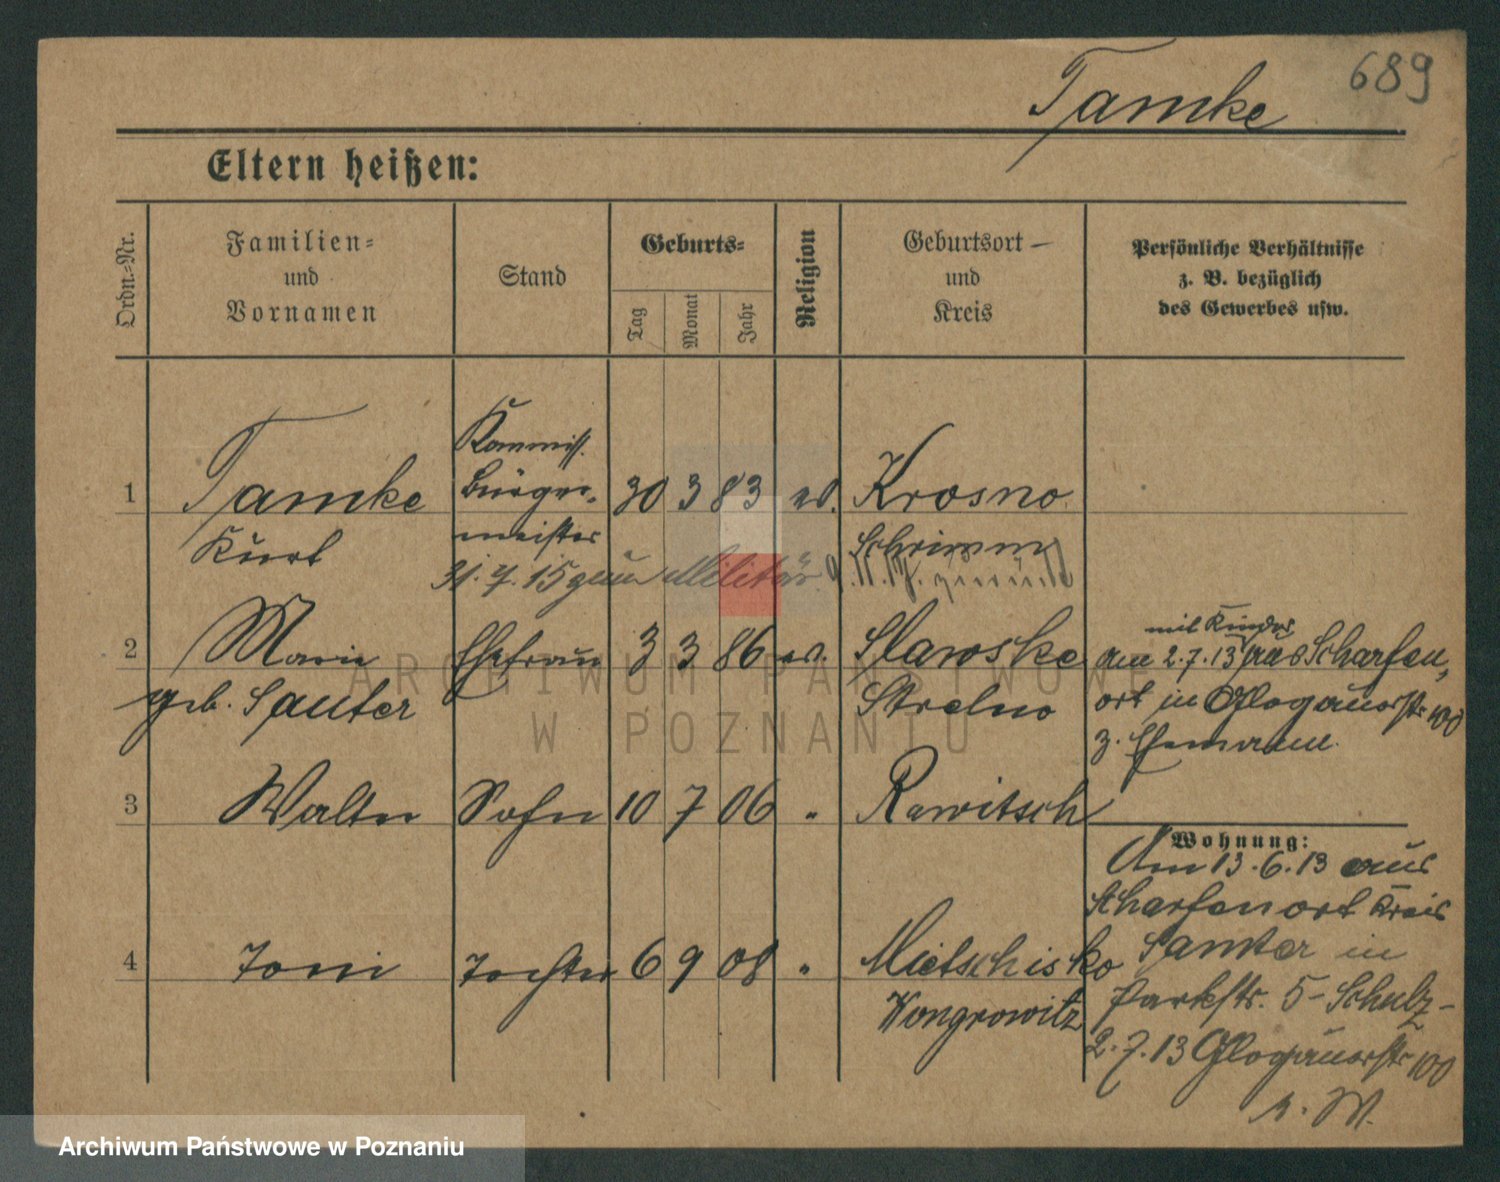 689
Tamke
Eltern heißen:
Ordn.=Nr.
Familien=
und
Vornamen
Stand
Geburts=
Tag
Monat
Jahr
Religion
Geburtsort
und
Kreis
Persönliche Verhältnisse
z. B. bezüglich
des Gewerbes usw.
1
Tamke
Kurt
Kommiss.
Bürger-
meister
30 3 83
ev.
Krosno
Schrimm
31. 7. 15 zum Militär
zurück
2
Marie
geb. Sauter
Ehefrau
3 3 86
ev.
Slawsko
Strelno
mit Kinder
am 2.7.13 aus Scharfen-
ort in Glogauerstr 100
z. Ehemann.
3
Walter
Sohn
10 7 06
"
Rawitsch
Wohnung:
Am 13.6.13 aus
Scharfenort Kreis
Samter in
Parkstr. 5 - Schulz -
2.7.13 Glogauerstr 100
4
Toni
Tochter
6 9 08
"
Mietschisko
Wongrowitz
ARCHIWUM PAŃSTWOWE
W POZNANIU
Archiwum Państwowe w Poznaniu